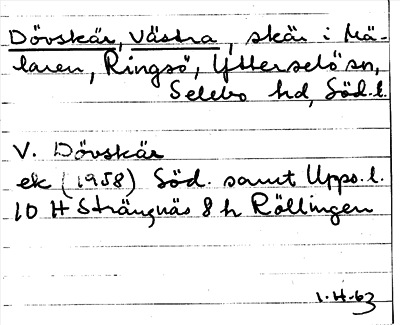 Dövskär, Västra, skär i Mä-
laren, Ringsö, Ytterselö sn,
Selebo hd, Söd. l.
V. Dövskär
ek (1958) Söd. samt Upps. l.
10 H Strängnäs 8 h Rällingen